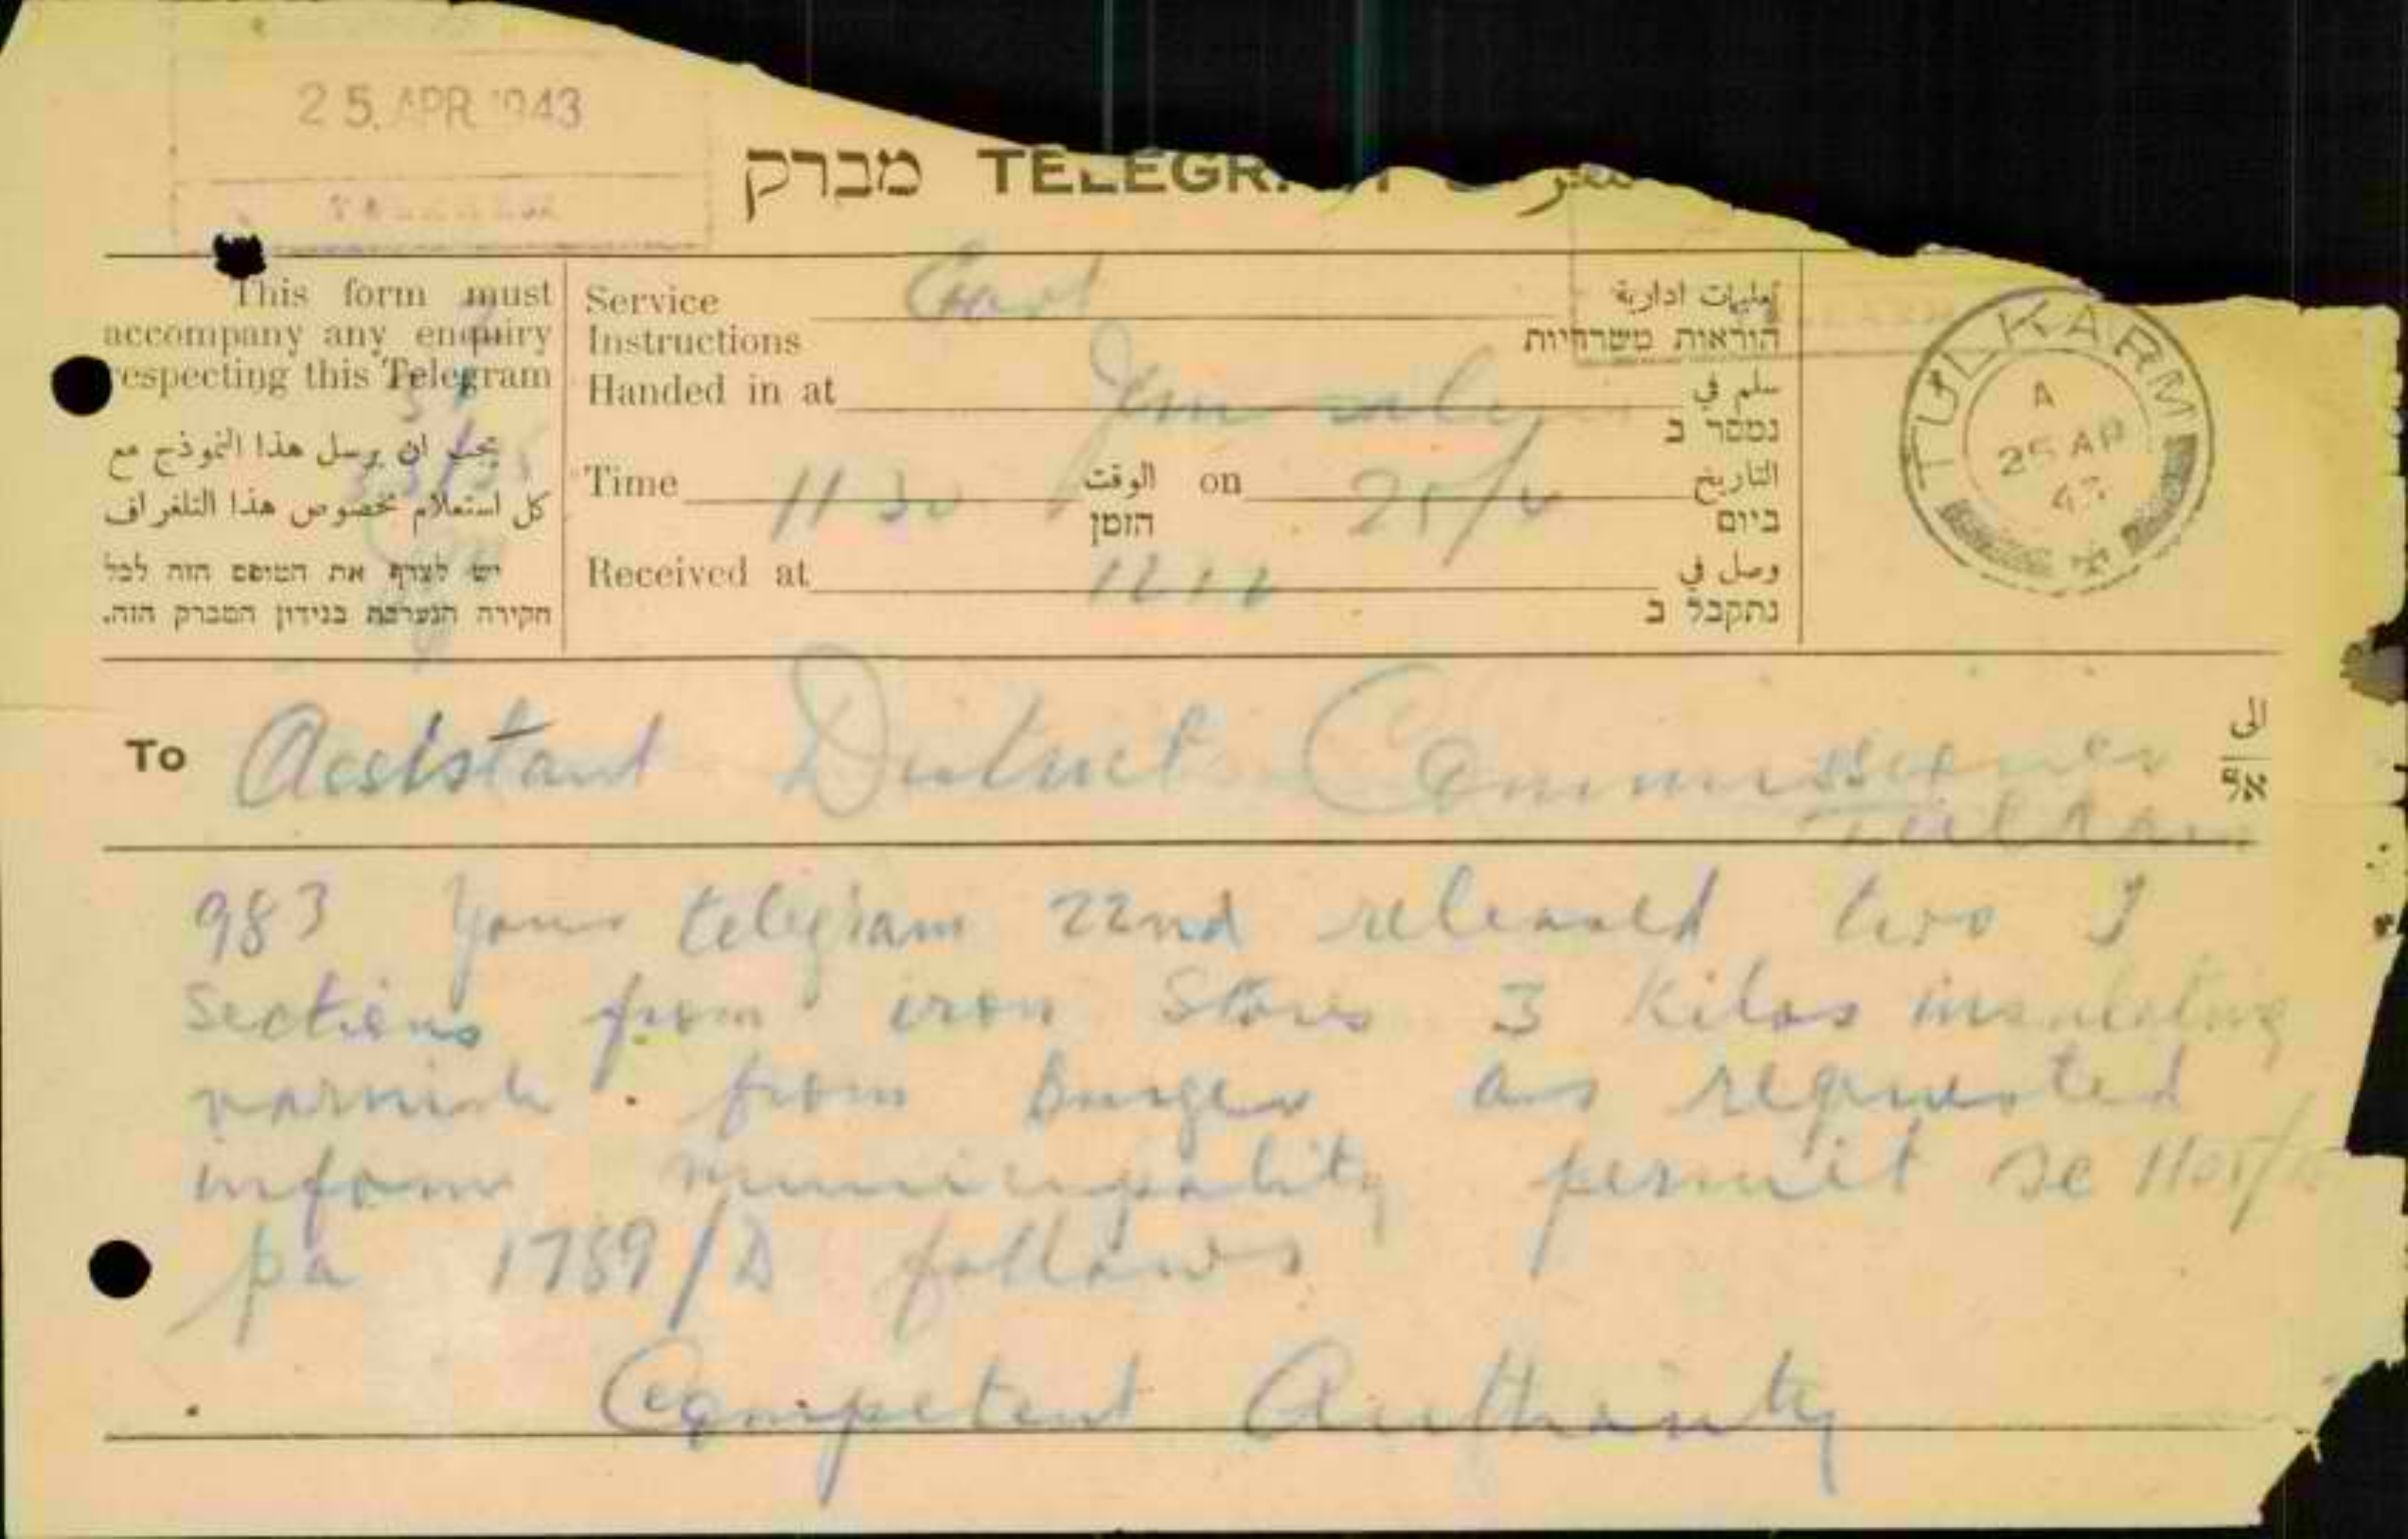 25. APR 1943
מברק TELEGRAM
This form must
accompany any enquiry
respecting this Telegram
يجب ان يرسل هذا النموذج مع
كل استعلام بخصوص هذا التلغراف
יש לצרף את הטופס הזה לכל
חקירה הנערכת בנידון המברק הזה.
Service Govt تعليمات ادارية
Instructions הוראות משרדיות
Handed in at Jerusalem سلم في
נמסר ב
Time 11 30 الوقت on 25/4 التاريخ
הזמן ביום
Received at وصل في
נתקבל ב
TULKARM
A
25 AP
43
To Assistant District Commissioner الى
אל
Tulkarm
983 Your telegram 22nd released two I
sections from iron stores 3 kilos insulating
varnish from as requested
inform municipality permit sc
pa 1789/D follows
Competent Authority